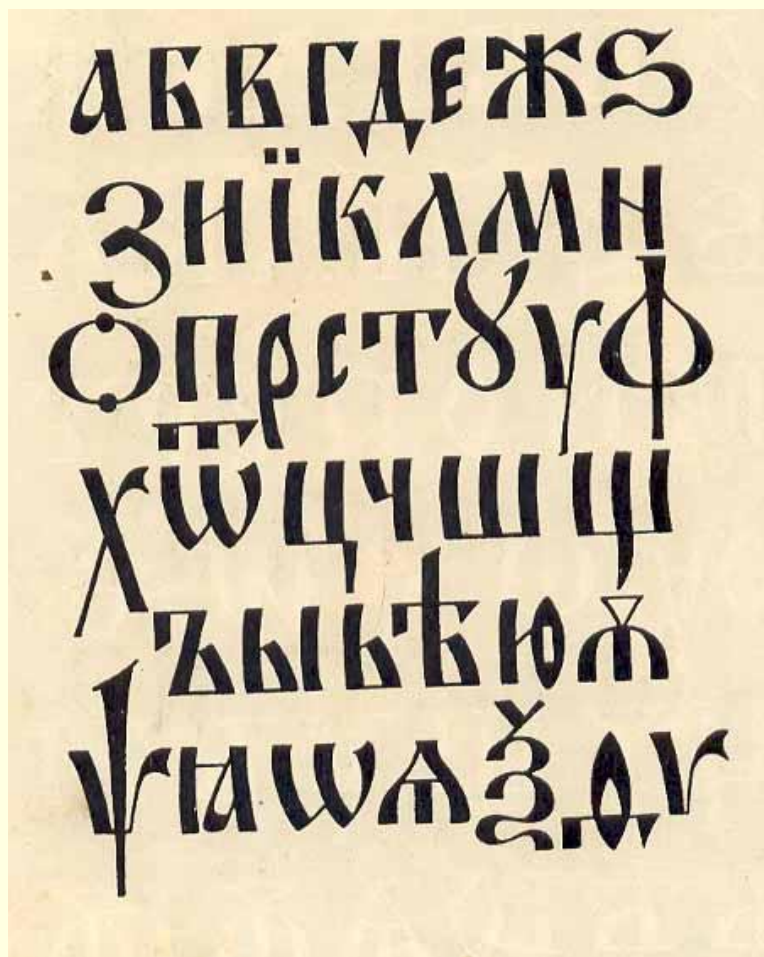 АБВГДЕЖЅ
ЗИЇКЛМН
ОПРСТꙊУФ
ХѾЦЧШЩ
ЪЫЬѢЮѪ
ѰꙖѠѦѮѲѴ